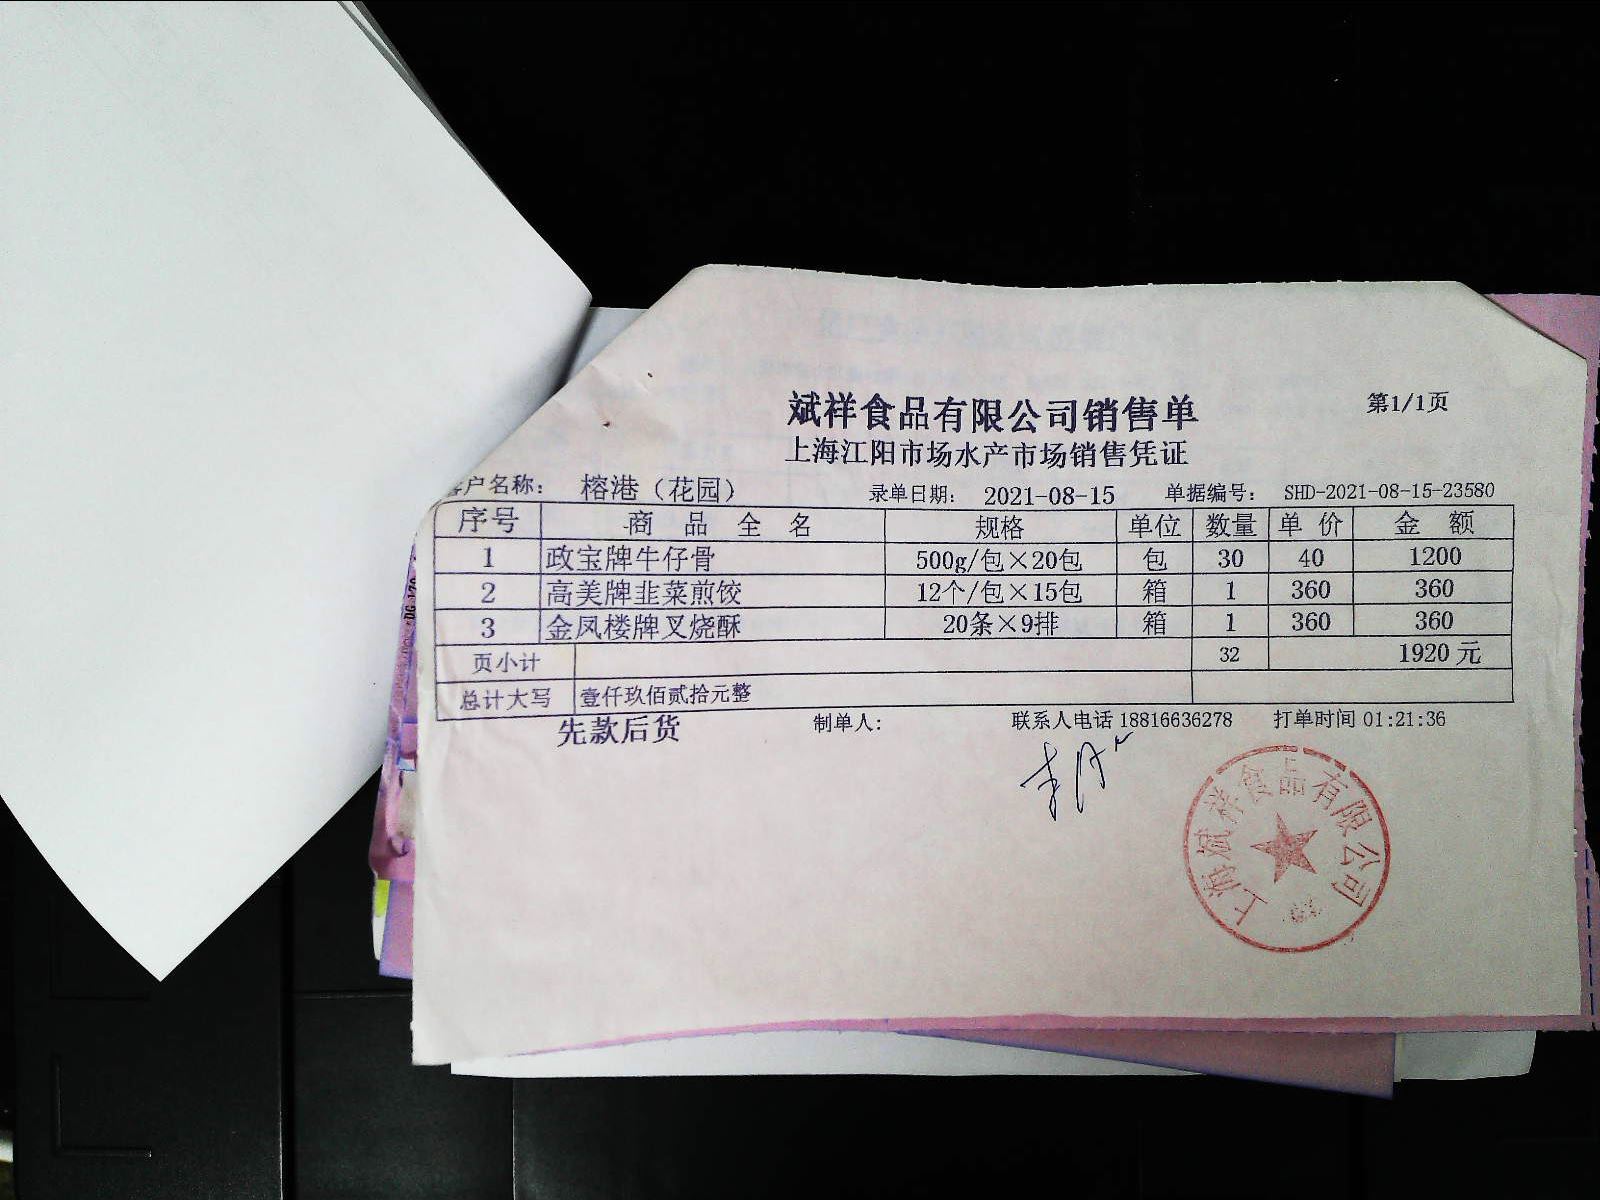 斌祥食品有限公司销售单
第1/1页
上海江阳市场水产市场销售凭证
客户名称： 榕港（花园） 录单日期： 2021-08-15 单据编号： SHD-2021-08-15-23580
序号 商品全名 规格 单位 数量 单价 金额
1 政宝牌牛仔骨 500g/包×20包 包 30 40 1200
2 高美牌韭菜煎饺 12个/包×15包 箱 1 360 360
3 金凤楼牌叉烧酥 20条×9排 箱 1 360 360
页小计 32 1920 元
总计大写 壹仟玖佰贰拾元整
先款后货 制单人： 联系人电话 18816636278 打单时间 01:21:36
上海斌祥食品有限公司